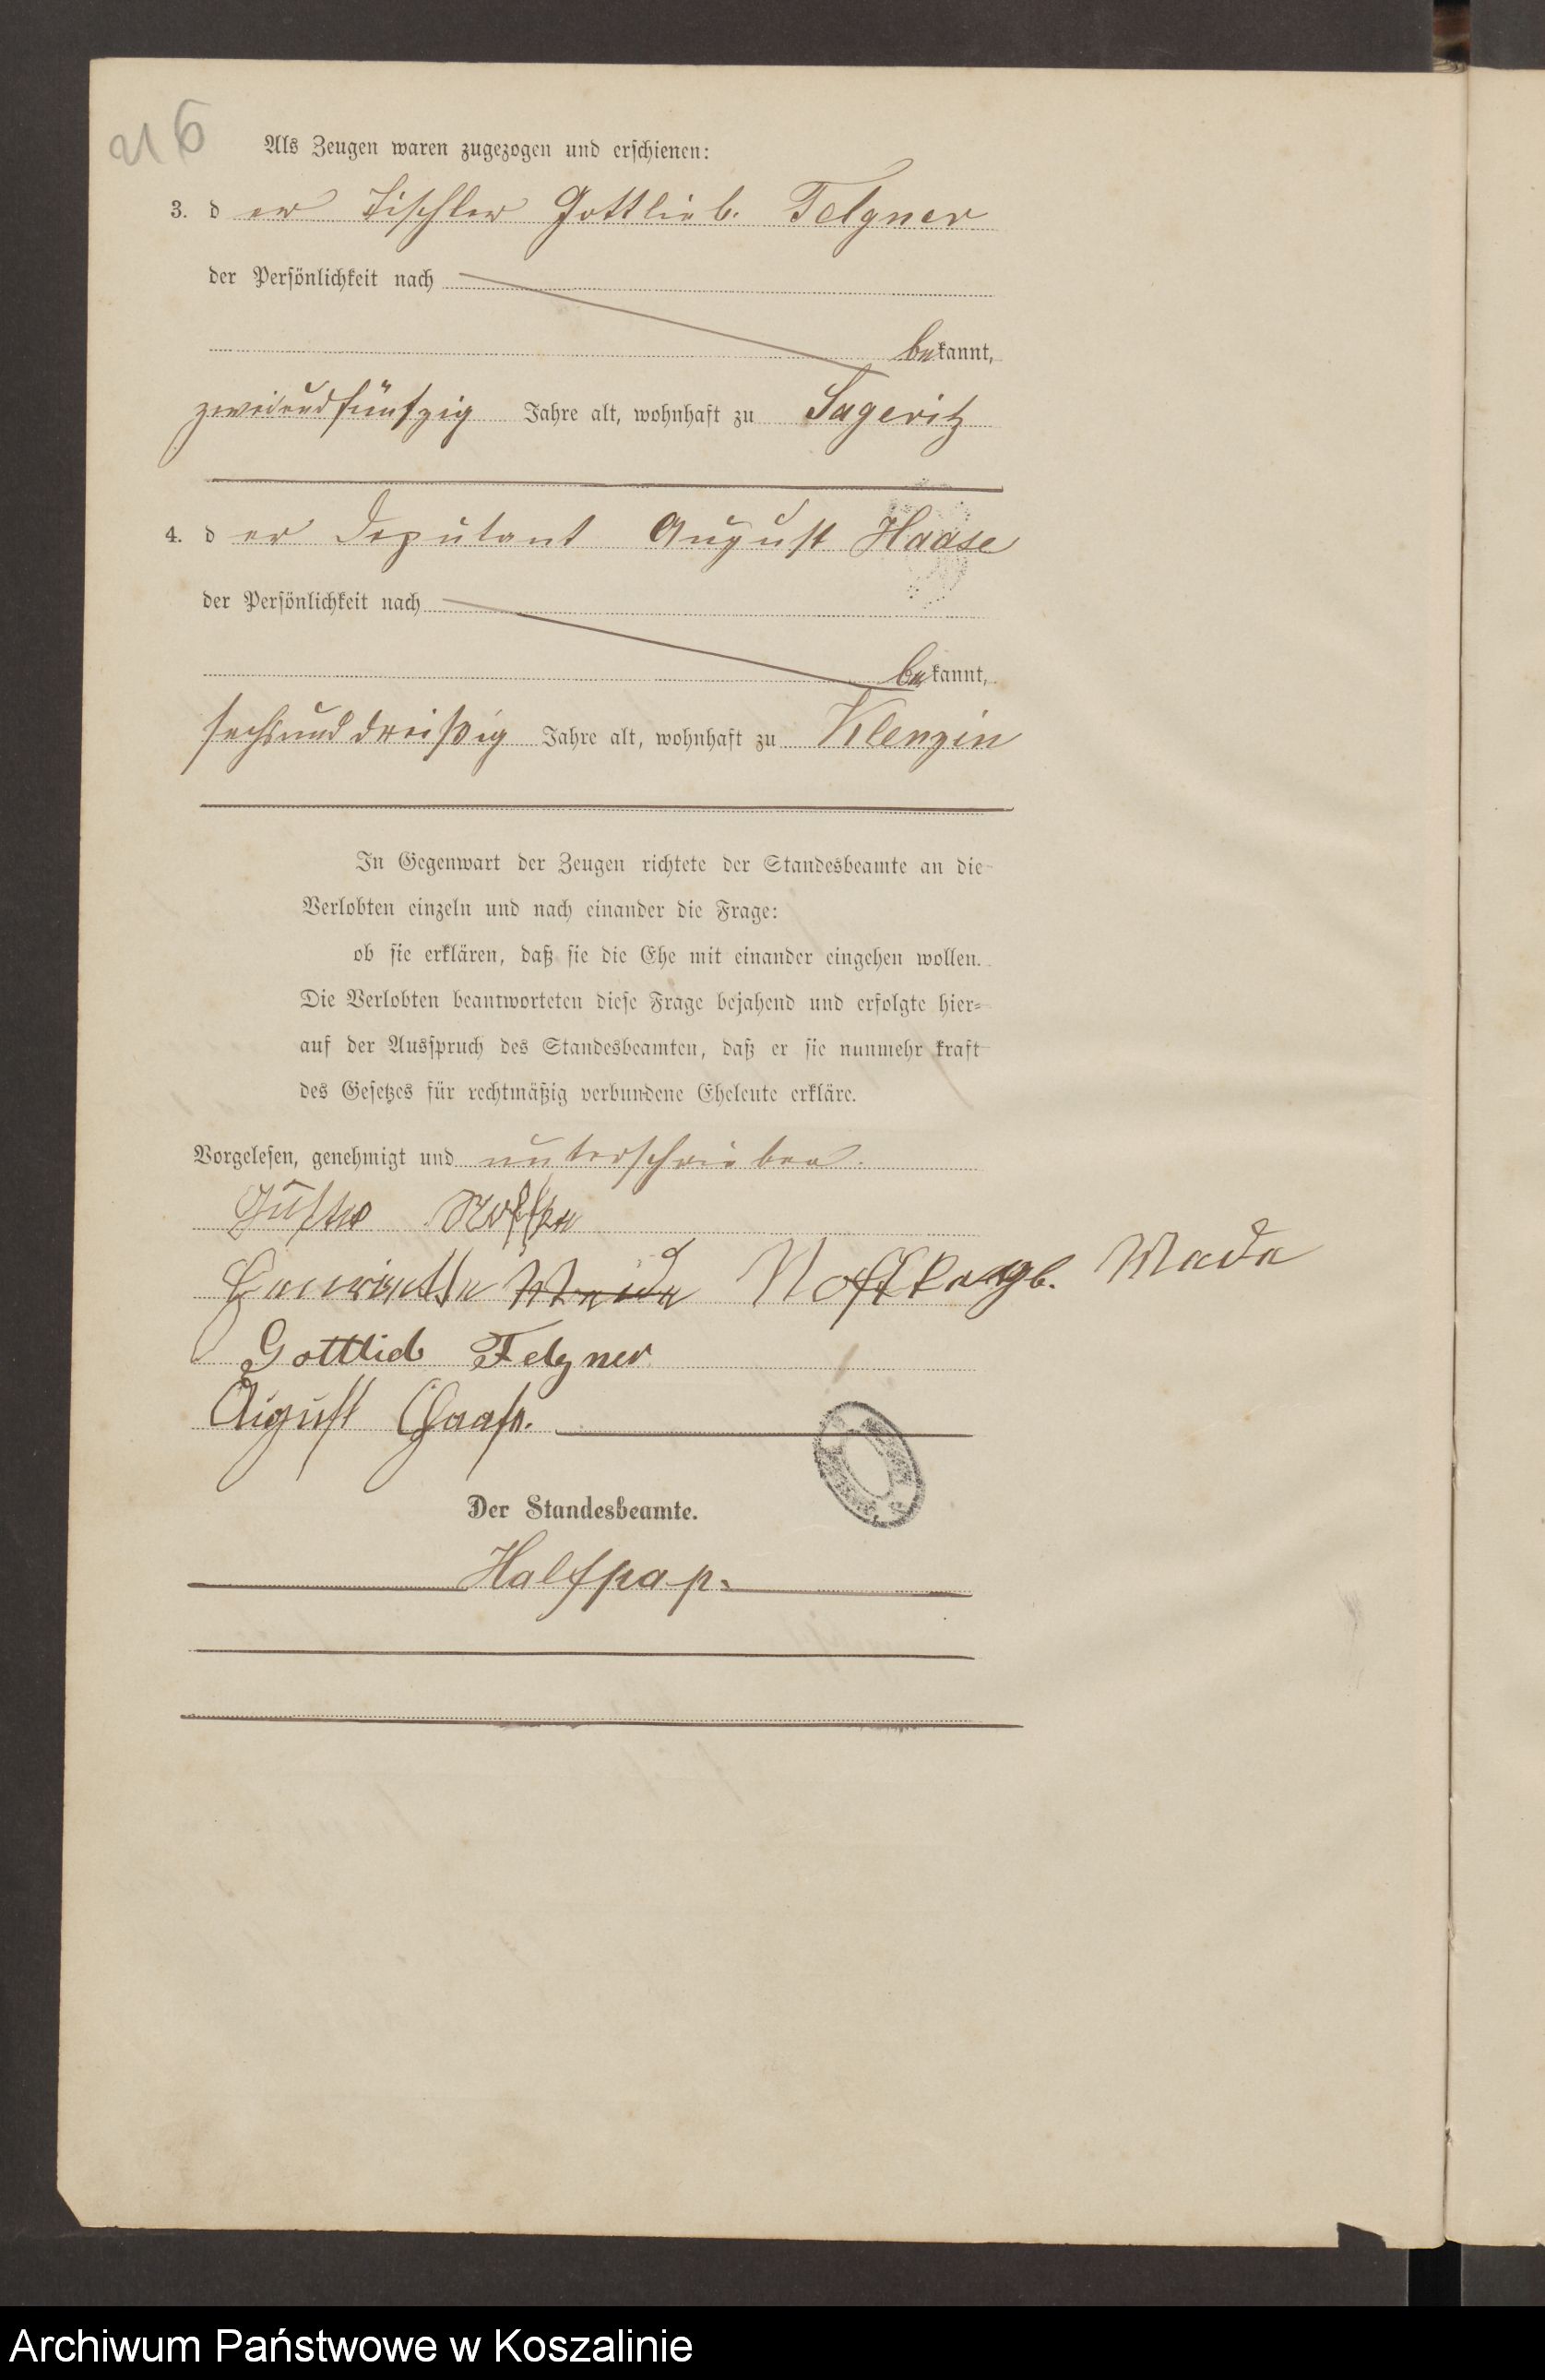 216
Als Zeugen waren zugezogen und erschienen:
3. d er Tischler Gottlieb Felgner
der Persönlichkeit nach
bekannt,
zweiundfünfzig Jahre alt, wohnhaft zu Sageritz
4. d er Deputant August Haase
der Persönlichkeit nach
bekannt,
sechsunddreißig Jahre alt, wohnhaft zu Klenzin
In Gegenwart der Zeugen richtete der Standesbeamte an die
Verlobten einzeln und nach einander die Frage:
ob sie erklären, daß sie die Ehe mit einander eingehen wollen.
Die Verlobten beantworteten diese Frage bejahend und erfolgte hier-
auf der Ausspruch des Standesbeamten, daß er sie nunmehr kraft
des Gesetzes für rechtmäßig verbundene Eheleute erkläre.
Vorgelesen, genehmigt und unterschrieben.
Noffke
Noffke gb.
Gottlieb Felgner
August Haase.
Der Standesbeamte.
Halfpap.
Archiwum Państwowe w Koszalinie